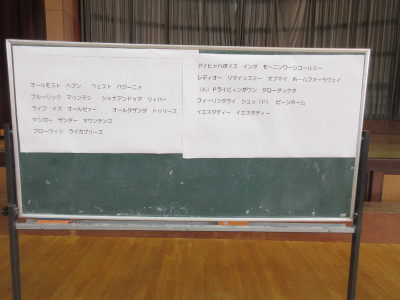 オールモスト ヘブン ウェスト バジーニァ
ブルーリッジ マゥンテン シャナアンドゥア リィバー
ライフ イズ オールゼァー オールダザンダ トゥリーズ
ヤンガー ザンダー マウンテンズ
ブローウィン ライカブリーズ
アイヒァハボイス インダ モーニンワーシコールミー
レディオー リマインズミー オブマイ ホームファーラウェイ
(ん)ドライビィンダウン ダローダッゲダ
フィーリンダライ シュッ(ド) ビーンホーム
イエスタディー イエスタディー